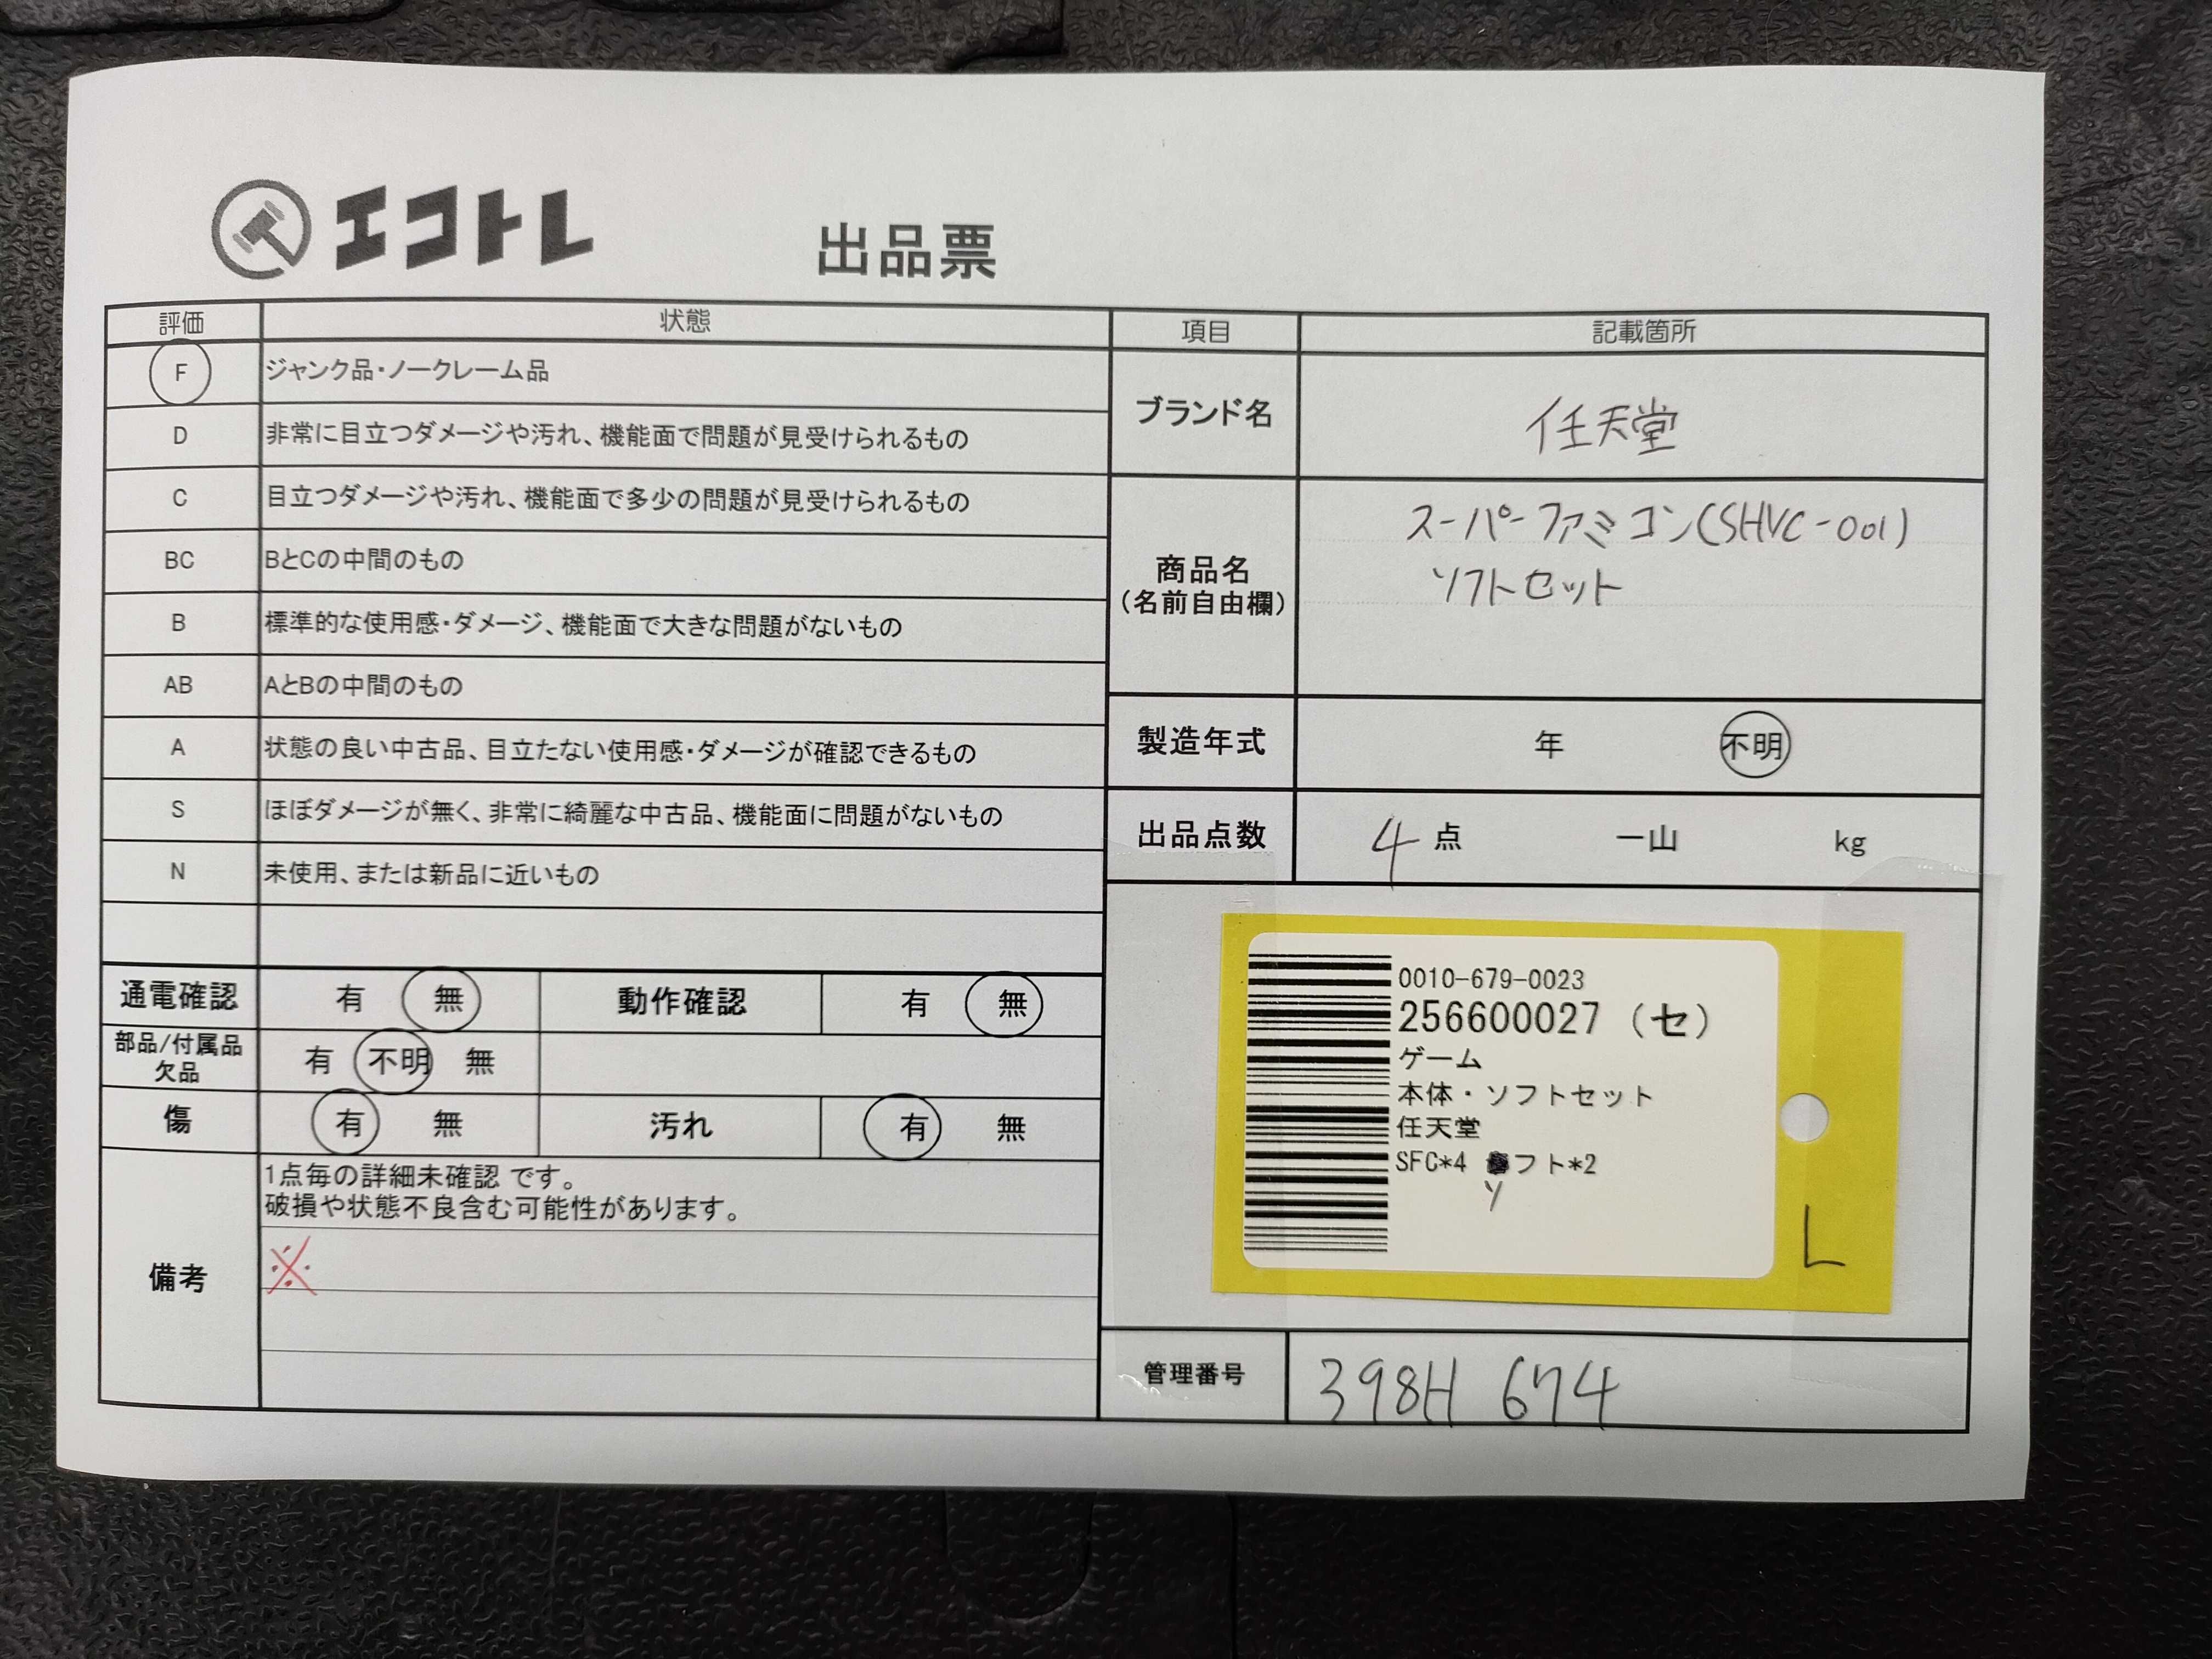 エコトレ
出品票
評価 状態
F ジャンク品・ノークレーム品
D 非常に目立つダメージや汚れ、機能面で問題が見受けられるもの
C 目立つダメージや汚れ、機能面で多少の問題が見受けられるもの
BC BとCの中間のもの
B 標準的な使用感・ダメージ、機能面で大きな問題がないもの
AB AとBの中間のもの
A 状態の良い中古品、目立たない使用感・ダメージが確認できるもの
S ほぼダメージが無く、非常に綺麗な中古品、機能面に問題がないもの
N 未使用、または新品に近いもの
通電確認 有 無 動作確認 有 無
部品/付属品
欠品 有 不明 無
傷 有 無 汚れ 有 無
備考
1点毎の詳細未確認 です。
破損や状態不良含む可能性があります。
※
項目 記載箇所
ブランド名 任天堂
商品名
(名前自由欄)
スーパーファミコン(SHVC-001)
ソフトセット
製造年式 年 不明
出品点数 4 点 一山 kg
0010-679-0023
256600027 (セ)
ゲーム
本体・ソフトセット
任天堂
SFC*4 フト*2
ソ
L
管理番号 398H 674